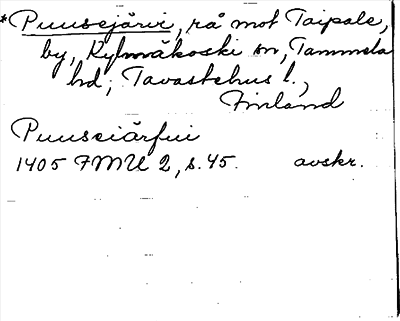 *Puusejärvi, rå mot Taipale,
by, Kylmäkoski sn, Tammela
hd, Tavastehus l.,
Finland
Puuseiärfui
1405 FMU 2, s. 45. avskr.